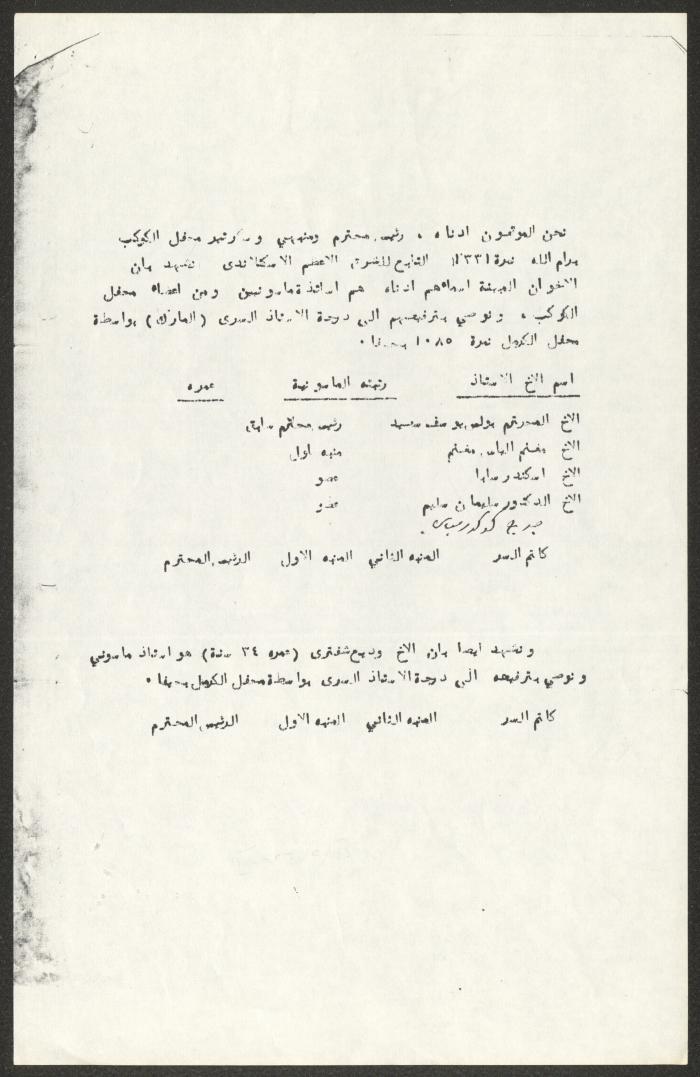 نحن الموقعون ادناه ، رئيس محترم ومنبهي وسكرتير محفل الكوكب
برام الله نمرة ١٣٣١ التابع للشرق الاعظم الاسكتلاندى نشهد بان
الاخوان المبينة اسماءهم ادناه هم اساتذة ماسونيين ومن اعضاء محفل
الكوكب ، ونوصي بترفيعهم الى درجة الاستاذ السرى (المارك) بواسطة
محفل الكرمل نمرة ١٠٨٥ بحيفا ٠
اسم الاخ الاستاذ رتبته الماسونية عمره
الاخ المحترم بولس يوسف سعيد رئيس محترم سابق
الاخ مغنم الياس مغنم منبه اول
الاخ اسكندر سابا عضو
الاخ الدكتور سليمان سليم عضو
كاتم السر المنبه الثاني المنبه الاول الرئيس المحترم
ونشهد ايضا بان الاخ وديع شفترى (عمره ٣٤ سنة) هو استاذ ماسوني
ونوصي بترفيعه الى درجة الاستاذ السرى بواسطة محفل الكرمل بحيفا ٠
كاتم السر المنبه الثاني المنبه الاول الرئيس المحترم